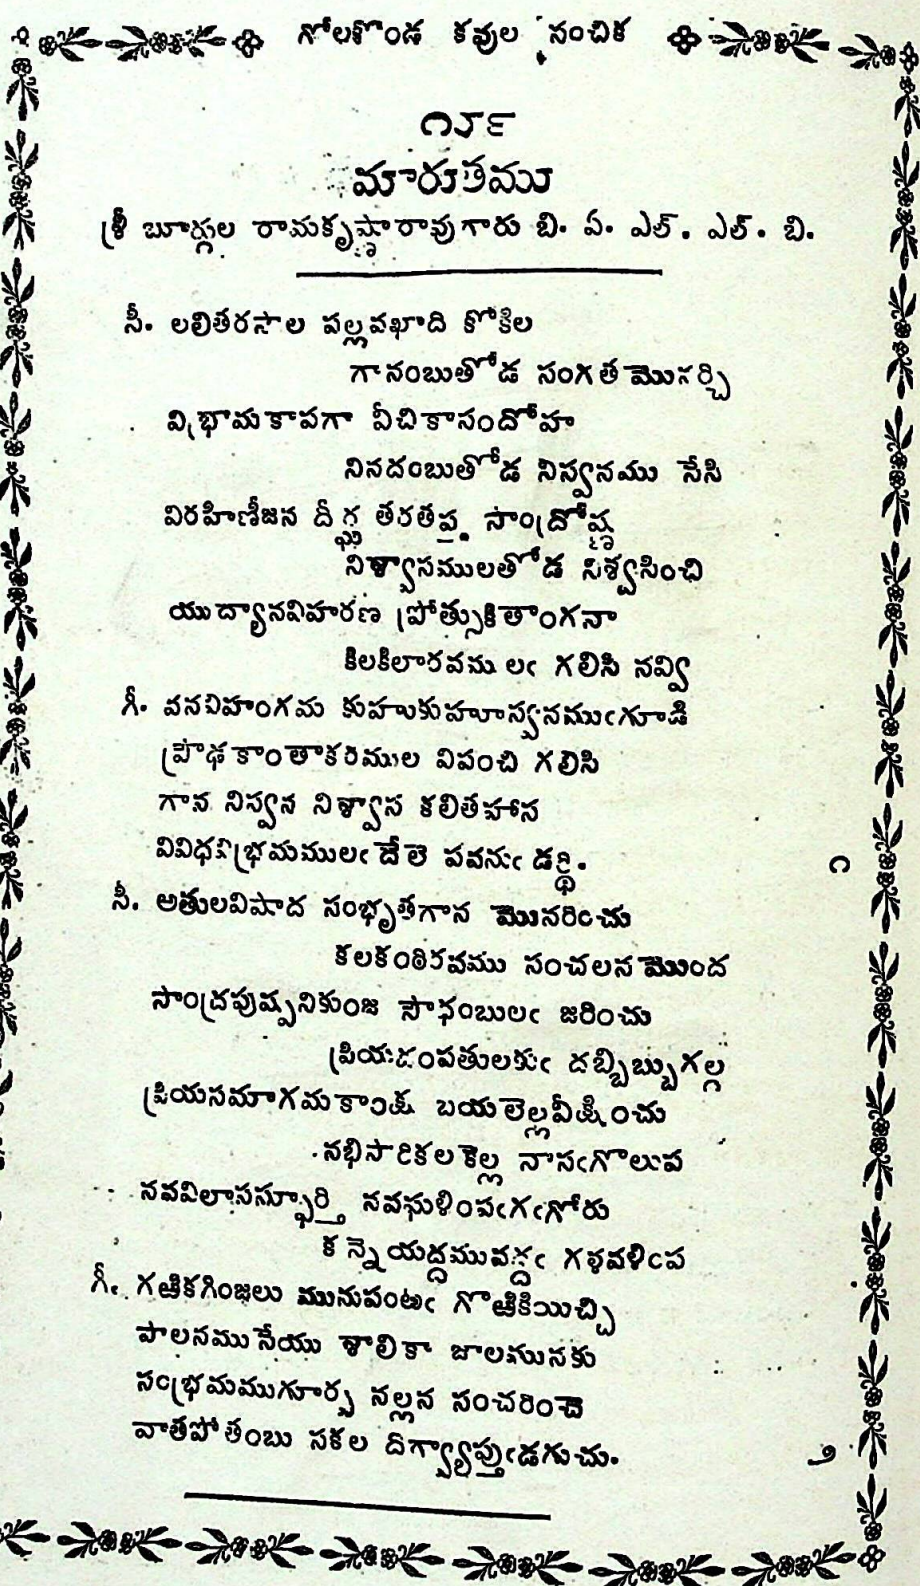 గోలకొండ కవుల సంచిక
౧౨౯
మారుతము
శ్రీ బూర్గుల రామకృష్ణారావుగారు బి. ఏ. ఎల్. ఎల్. బి.
సీ. లలితరసాల పల్లవఖాది కోకిల
గానంబుతోడ సంగత మొనర్చి
విభ్రామకాపగా వీచికాసందోహ
నినదంబుతోడ నిస్వనము సేసి
విరహిణీజన దీర్ఘ తరతప్త సాంద్రోష్ణ
నిశ్వాసములతోడ నిశ్వసించి
యుద్యానవిహరణ ప్రోత్సుకితాంగనా
కిలకిలారవము లఁ గలిసి నవ్వి
గీ. వనవిహంగమ కుహుకుహూస్వనముఁగూడి
ప్రౌఢకాంతాకరముల విపంచి గలిసి
గాన నిస్వన నిశ్వాస కలితహాస
వివిధవిభ్రమములఁ దేలె పవనుఁ డర్థి. ౧
సీ. అతులవిషాద సంభృతగాన మొనరించు
కలకంఠిరవము సంచలన మొంద
సాంద్రపుష్పనికుంజ సౌధంబులఁ జరించు
ప్రియదంపతులకుఁ దబ్బిబ్బుగల్గ
ప్రియసమాగమకాంక్ష బయలెల్లవీక్షించు
నభిసారికలకెల్ల నాసఁగొలుప
నవవిలాసస్ఫూర్తి నవఘళింపఁగఁగోరు
కన్నెయద్దమువద్దఁ గళవళింప
గీ. గఱికగింజలు మునుపంటఁ గొఱికియిచ్చి
పాలనముసేయు శాలికా జాలమునకు
సంభ్రమముగూర్ప నల్లన సంచరించె
వాతపోతంబు సకల దిగ్వ్యాప్తుఁడగుచు. ౨